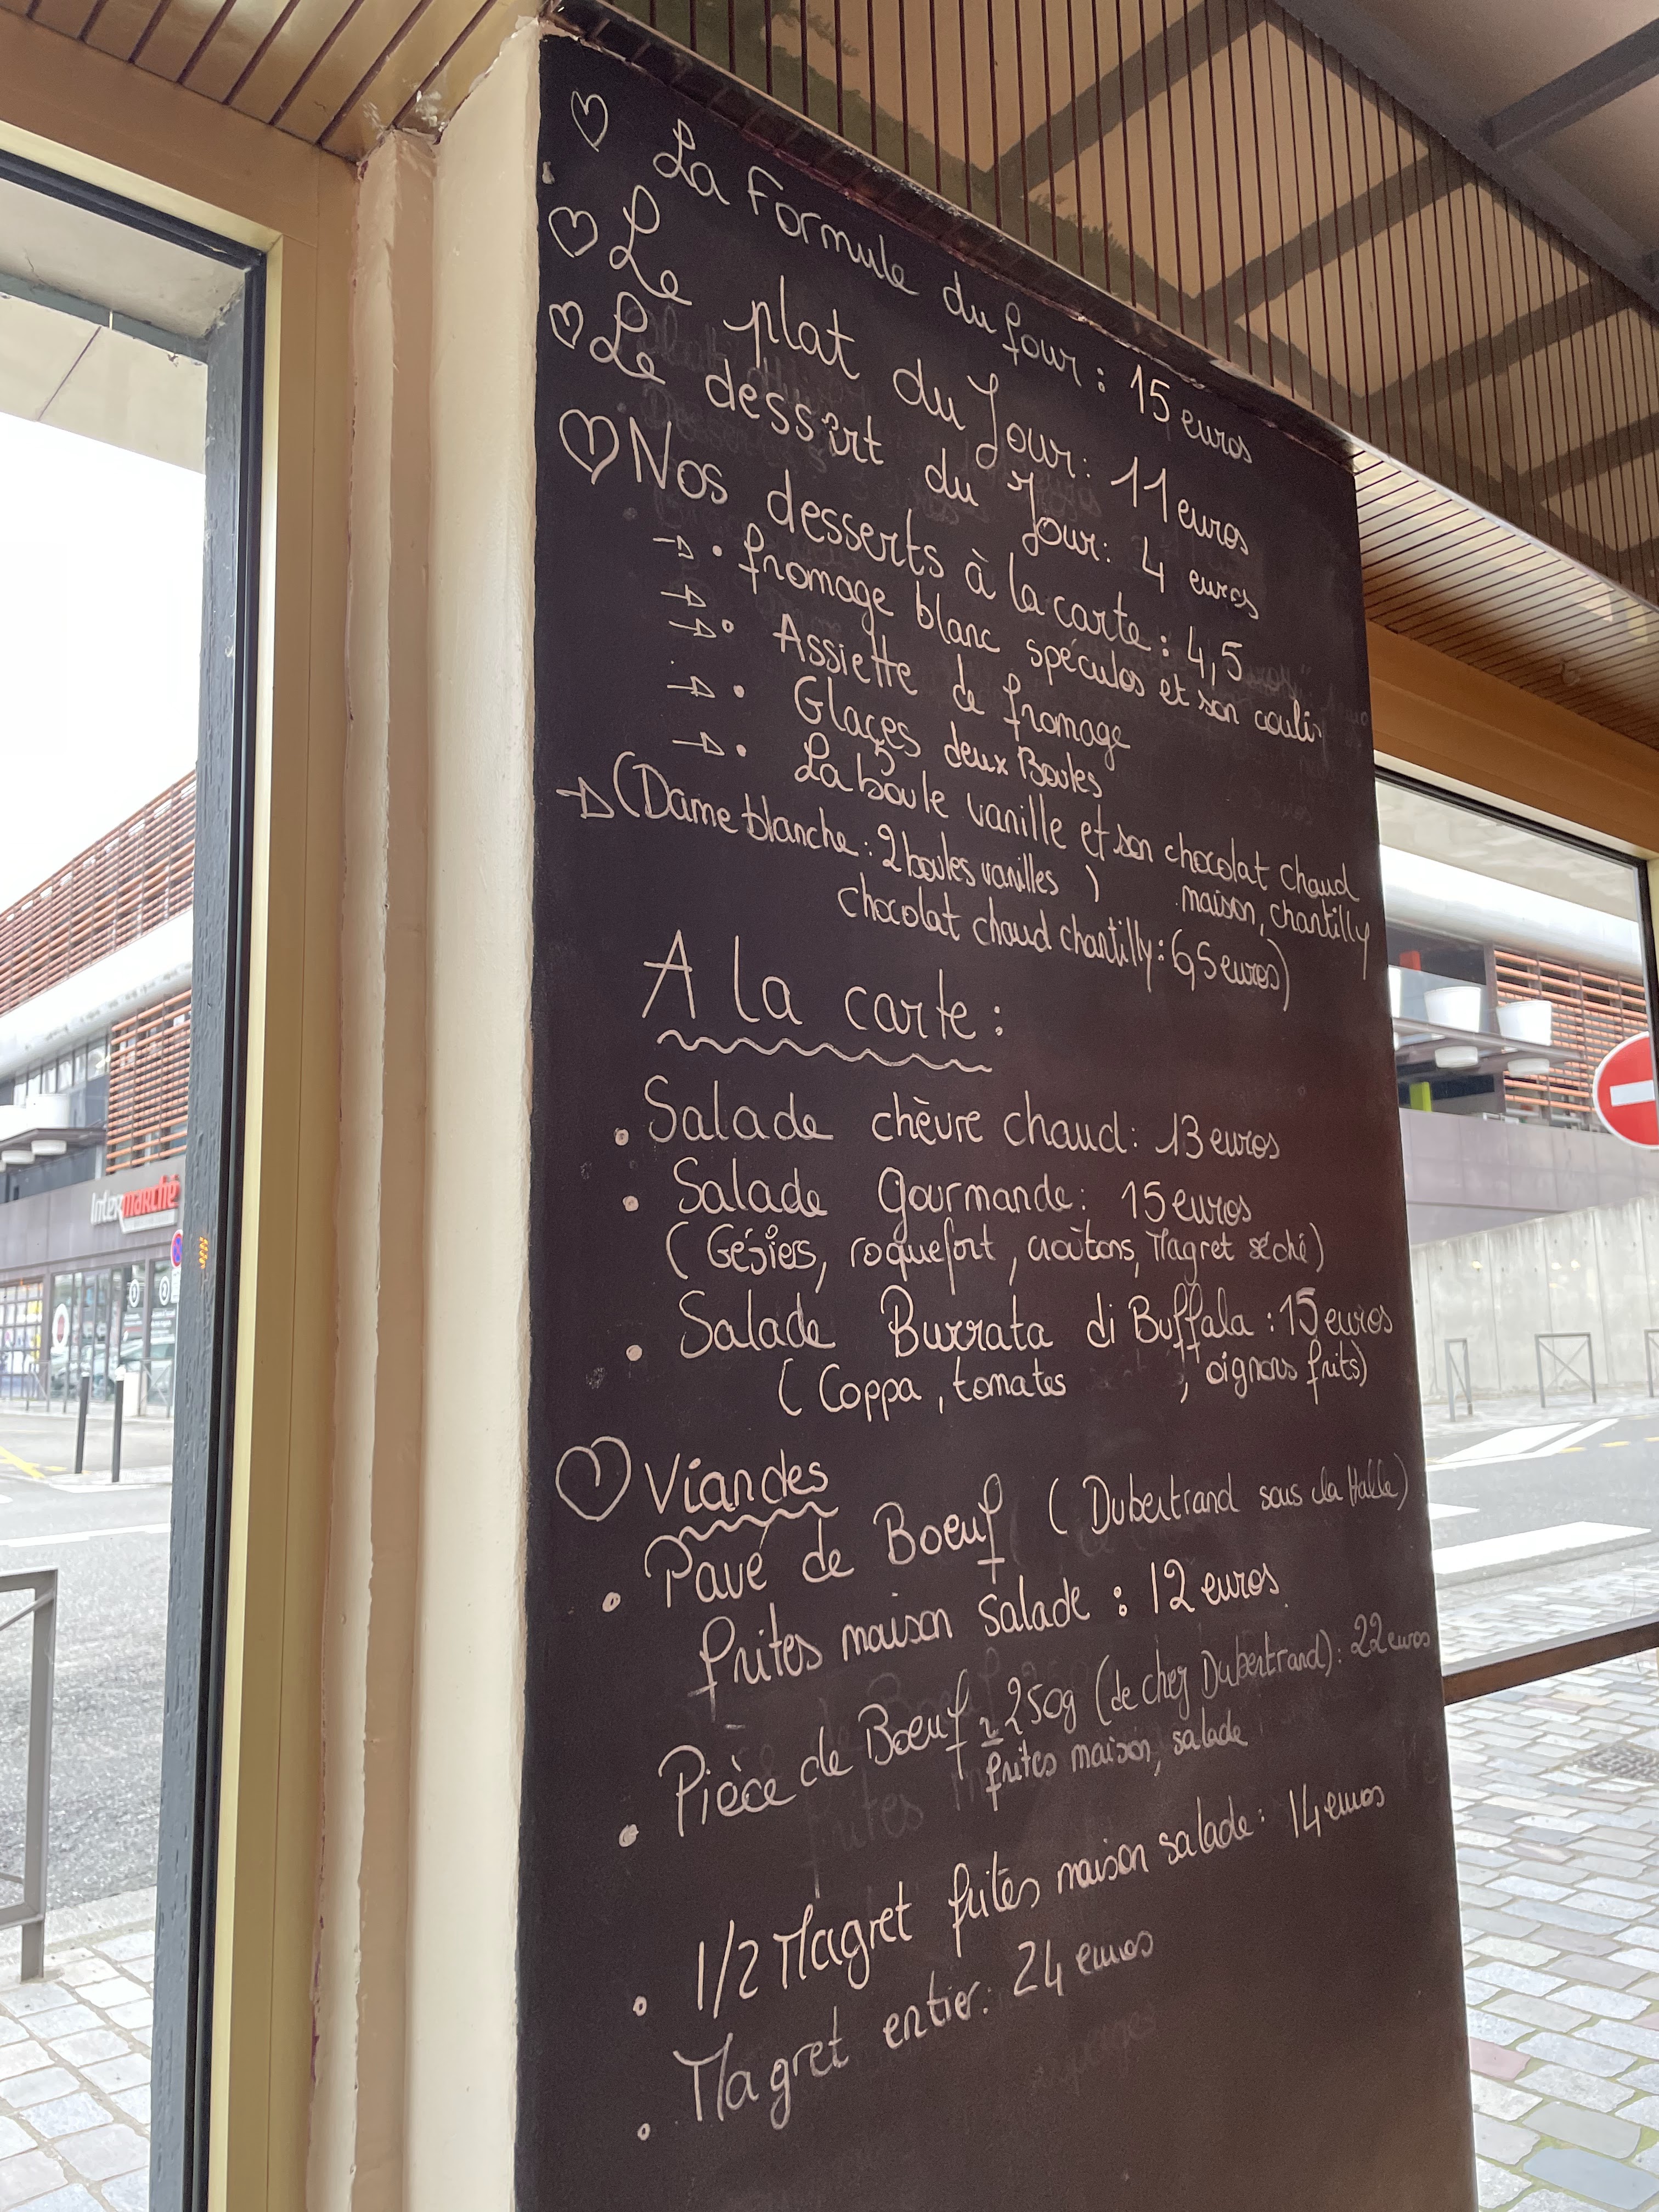 La Formule du Jour : 15 euros
Le plat du Jour : 11 euros
Le dessert du Jour : 4 euros
Nos desserts à la carte : 4,5
fromage blanc spéculos et son coulis
Assiette de fromage
Glaces deux Boules
La boule vanille et son chocolat chaud
maison, chantilly
(Dame blanche : 2 boules vanilles )
chocolat chaud chantilly : 6,5 euros)
A la carte :
Salade chèvre chaud : 13 euros
Salade Gourmande : 15 euros
(Gésiers, roquefort, croûtons, Magret séché)
Salade Burrata di Buffala : 15 euros
(Coppa, tomates , oignons frits)
Viandes
Pavé de Boeuf (Dubertrand sous la Halle)
frites maison salade : 12 euros
Pièce de Boeuf ≃ 250g (de chez Dubertrand) : 22 euros
frites maison, salade
1/2 Magret frites maison salade : 14 euros
Magret entier : 24 euros
Intermarché